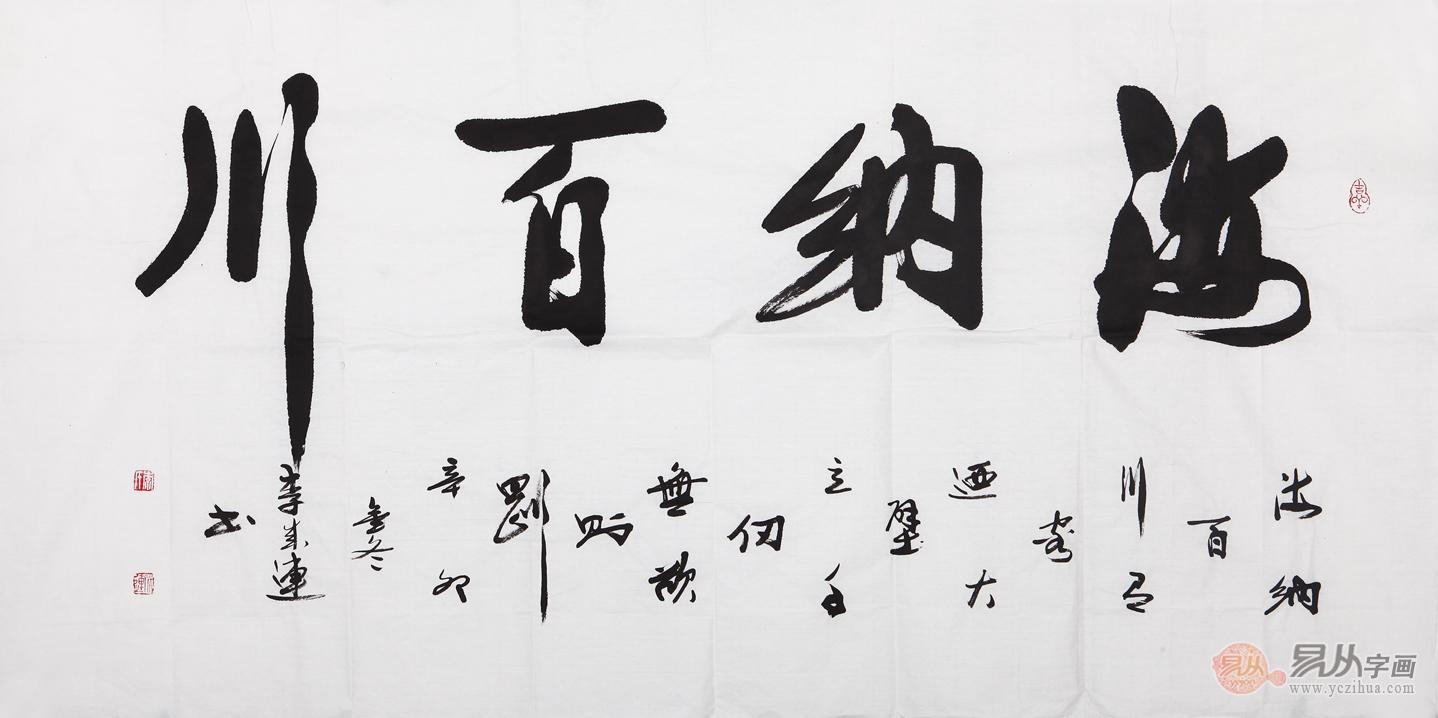 海纳百川
海纳
百
川有
容
迺大
壁
立千
仞
無欲
則
剛
辛卯
冬
李成連
书
易从
易从字画
www.yczihua.com